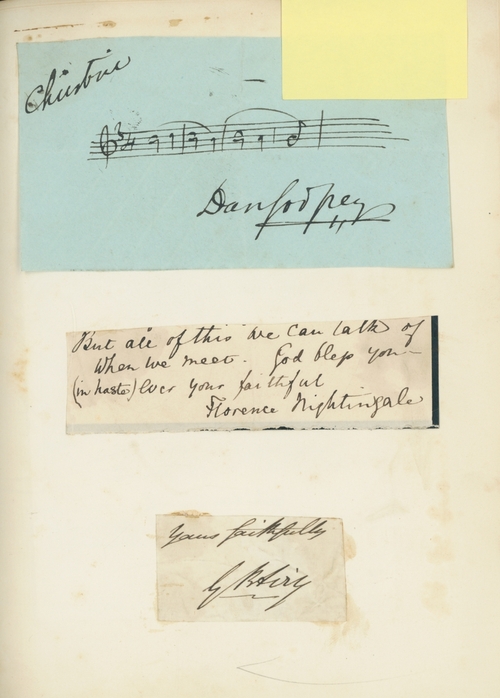 Christine
3/4
Dan Godfrey
But all of this we can talk of
When we meet. God bless you -
(in haste) Ever your faithful
Florence Nightingale
Yours faithfully
G B Airy